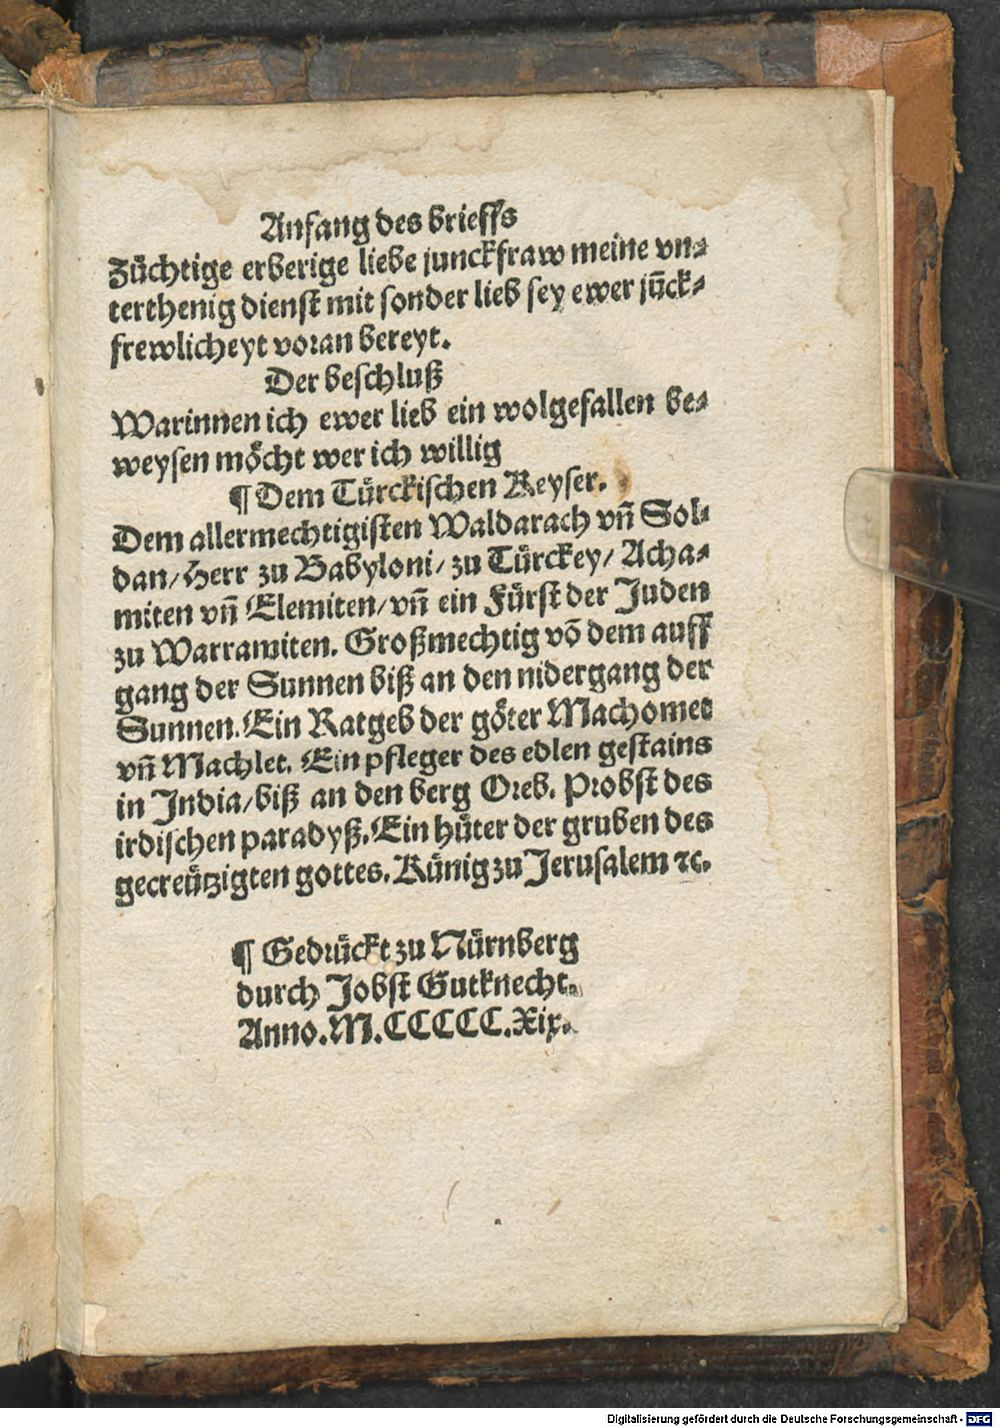 Anfang des brieffs
Züchtige erberige liebe junckfraw meine vn⸗
terthenig dienst mit sonder lieb sey ewer jūck⸗
frewlicheyt voran bereyt.
Der beschluß
Warinnen ich ewer lieb ein wolgefallen be⸗
weysen möcht wer ich willig
¶ Dem Türckischen Keyser.
Dem allermechtigisten Waldarach vn̄ Sol⸗
dan/ Herr zu Babyloni/ zu Türckey/ Acha⸗
miten vn̄ Elemiten/ vn̄ ein Fürst der Juden
zu Warramiten. Großmechtig vō dem auff
gang der Sunnen biß an den nidergang der
Sunnen. Ein Ratgeb der göter Machomet
vn̄ Machlet. Ein pfleger des edlen gestains
in India/ biß an den berg Oreb. Probst des
irdischen paradyß. Ein hüter der gruben des
gecreützigten gottes. Künig zu Jerusalem ꝛc.
¶ Gedrückt zu Nürnberg
durch Jobst Gutknecht.
Anno. M. CCCCC. Xix.
Digitalisierung gefördert durch die Deutsche Forschungsgemeinschaft - DFG